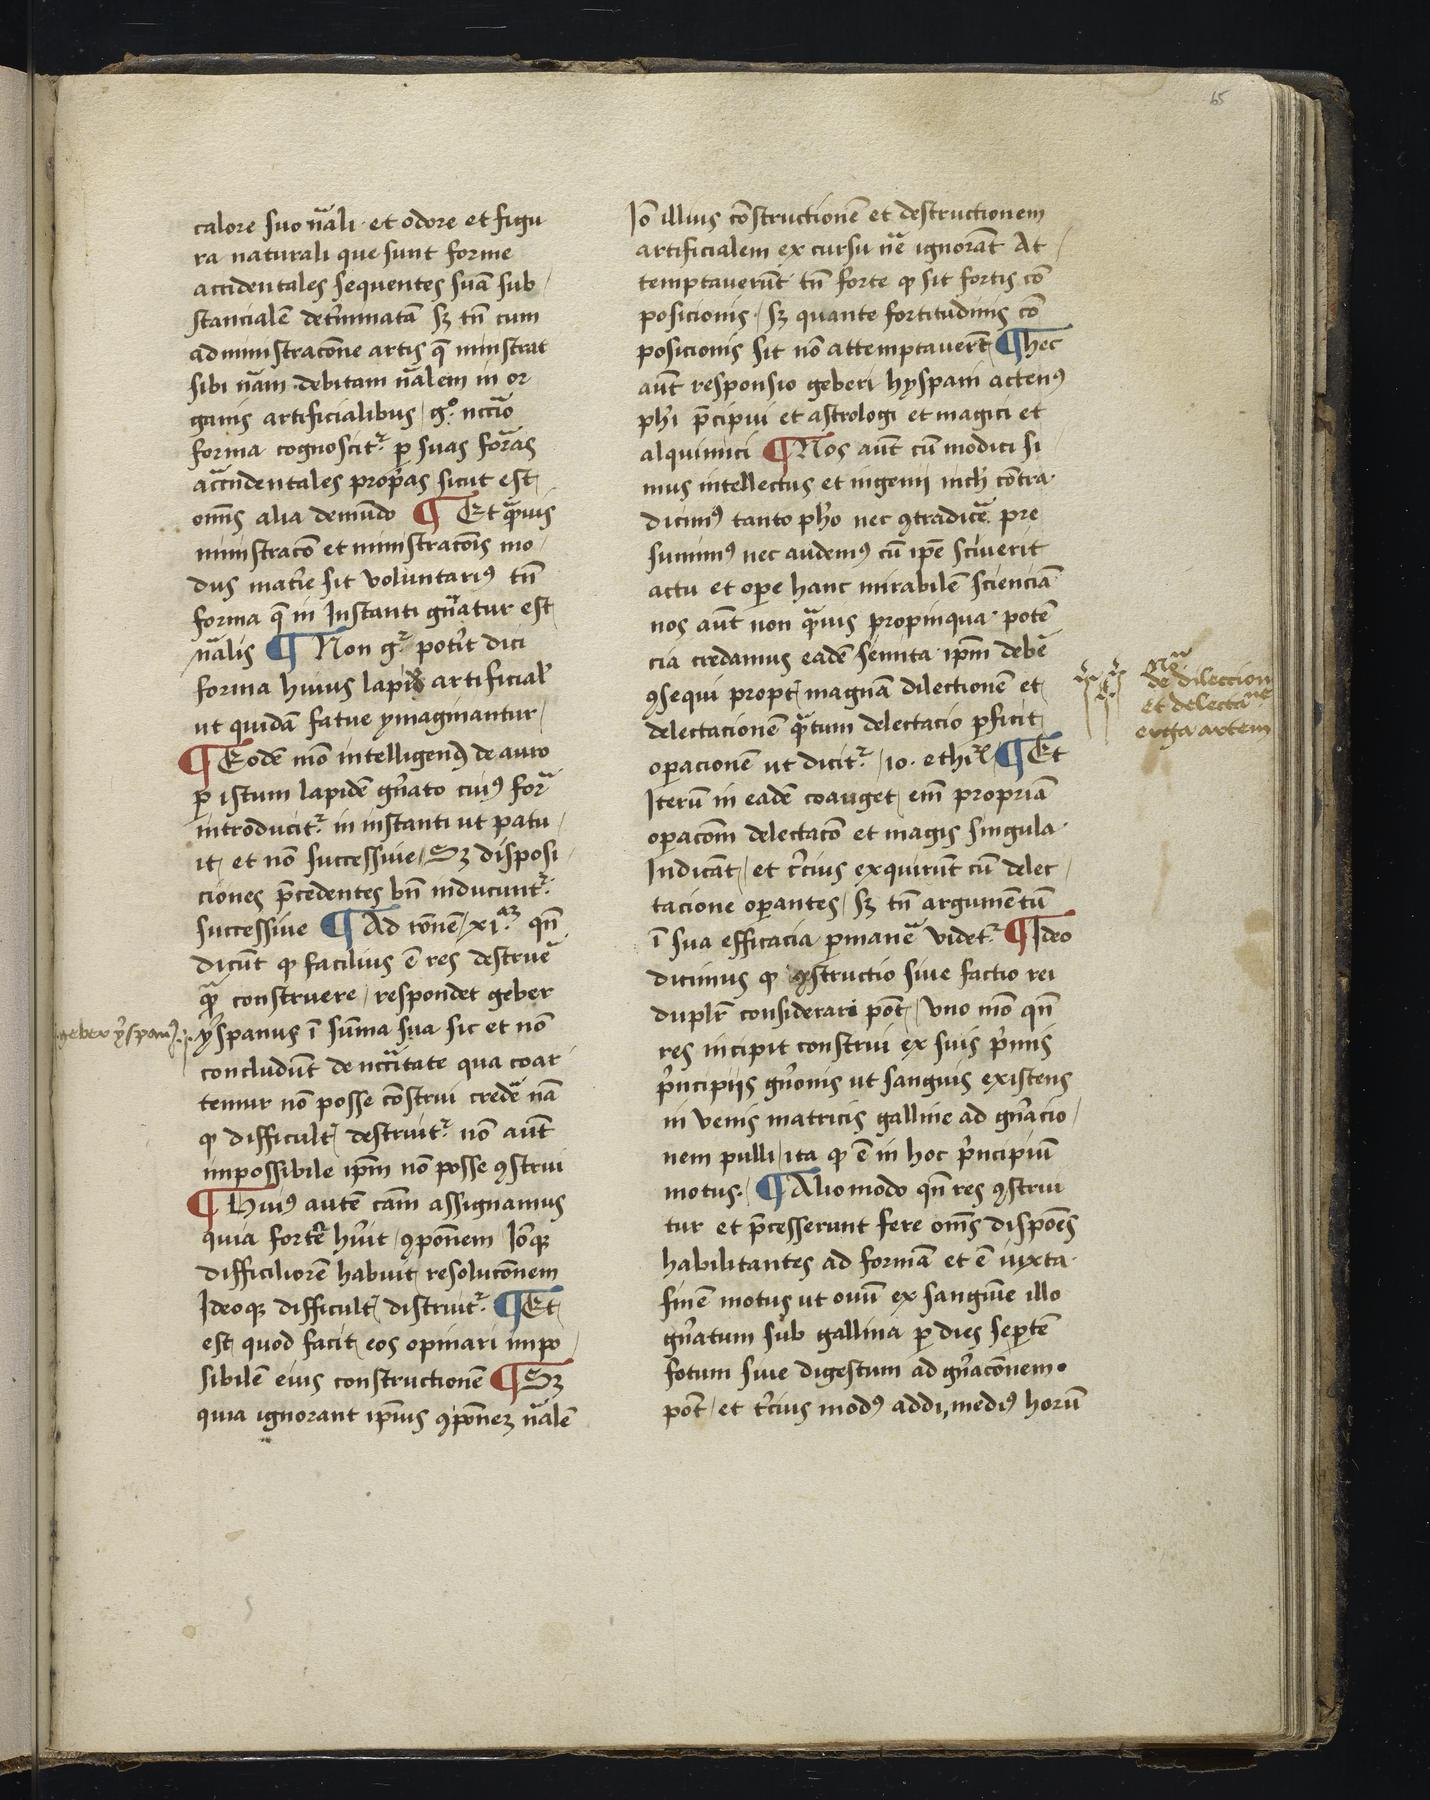 65
calore suo nãli · et odore et figu
ra naturali que sunt forme
accidentales sequentes suã sub
stancialẽ det̃minatã sꝫ tñ cum
administracõne artis q̃ ministrat
sibi nãm debitam nãlem in or
ganis artificialibus / gº nccĩo
forma cognoscitᷣ ꝑ suas forãs
accidentales proprias sicut est
oñis alia demũdo ¶ Et q̃uis
ministracõ et ministracõis mo
dus mat̃ie sit voluntariꝰ tñ
forma q̃ in Instanti gñatur est
nãlis ¶ Non gᷣ potᷣit dici
forma huius lapidis artificial̕
ut quidã fatue ymaginantur /
¶ Eodẽ mõ intelligendꝰ de auro
ꝑ istum lapidẽ gñato cuiꝰ forã
introducitᷣ in instanti ut patu
it / et nõ successiue / Sꝫ disposi
ciones p̃cedentes bñ inducuntᷣ
successiue ¶ Ad rõnẽ / xiᵃᵐ qñ
dicũt ꝙ facilius ẽ res destruẽ
q̃ construere / respondet geber
geber yspanꝰ
yspanus ĩ sum̃a sua sic et nõ
concludũt de nccĩtate qua coar
temur nõ posse cõstrui credẽ nã
ꝙ difficult̃ destruitᷣ nõ aũt
impossibile ipm̃ nõ posse ꝯstrui
¶ Huiꝰ autẽ cãm assignamus
quia fortẽ hũit / ꝯpõnem Iõꝙ
difficiliorẽ habuit resolucõnem
Ideoꝙ difficult̃ distruitᷣ ¶ Et
est quod facit eos opinari impo
sibilẽ eius constructionẽ ¶ Sꝫ
quia ignorant ipĩus ꝯpõneꝫ nãlẽ
Iõ illius cõstructionẽ et destructionem
artificialem ex cursu nẽ ignorãt At
temptauerũt tñ forte ꝙ sit fortis cõ
posicionis · sꝫ quante fortitudinis cõ
posicionis sit nõ attemptauert̃ ¶ hec
aũt responsio geberi hyspani actenꝰ
phĩ p̃cipui et astrologi et magici et
alquimici ¶ Nos aũt cũ modici si
mus intellectus et ingenij nich̕ cõtra
dicimꝰ tanto phõ nec ꝯtradicẽ pre
sumimꝰ nec audemꝰ cũ ipẽ sciuerit
actu et oꝑe hanc mirabilẽ scienciã
nos aũt non q̃uis propinqua potẽ
cia credamus eadẽ semita ipm̃ debẽ
ꝯsequi propt̃ magnã dilectionẽ et
delectacionẽ q̃tum delectacio ꝑficit
oꝑacionẽ ut dicitᷣ / 10 · ethiꝝ ¶ Et
nᵒᵃ
de dileccion
et delectãne
erga artem
Iterũ in eadẽ coauget em̃ propriã
oꝑacõm delectacõ et magis singula
Indicãt / et t̃cius exquirũt cũ delec
tacione oꝑantes / sꝫ tñ argumẽtũ
ĩ sua efficacia ꝑmanẽ videtᷣ ¶ Ideo
dicimus ꝙ ꝯstructio siue factio rei
duplr̃ considerari põt / Vno mõ qñ
res incipit construi ex suis p̃imis
p̃incipijs gñonis ut sanguis existens
in venis matricis galline ad gñacio
nem pulli / ita ꝙ ẽ in hoc p̃incipiũ
motus · ¶ Alio modo qñ res ꝯstrui
tur et p̃cesserunt fere om̃s dispoẽs
habilitantes ad formã et ẽ iuxta
finẽ motus ut ouũ ex sanguĩe illo
gñatum sub gallina ꝑ dies septẽ
fotum siue digestum ad gñacõnem ·
põt / et t̃cius modꝰ addi, mediꝰ horũ